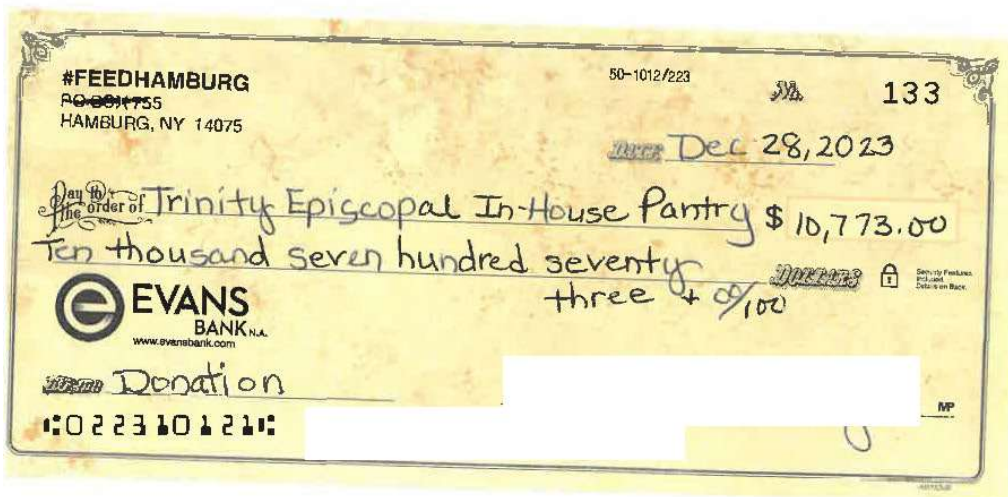 #FEEDHAMBURG
50-1012/223
No. 133
PO BOX 755
HAMBURG, NY 14075
DATE Dec 28, 2023
Pay to the order of Trinity Episcopal In-House Pantry $ 10,773.00
Ten thousand seven hundred seventy DOLLARS
Security Features Included. Details on Back.
three + 00/100
e EVANS
BANK N.A.
www.evansbank.com
MEMO Donation
MP
⑆022310121⑆